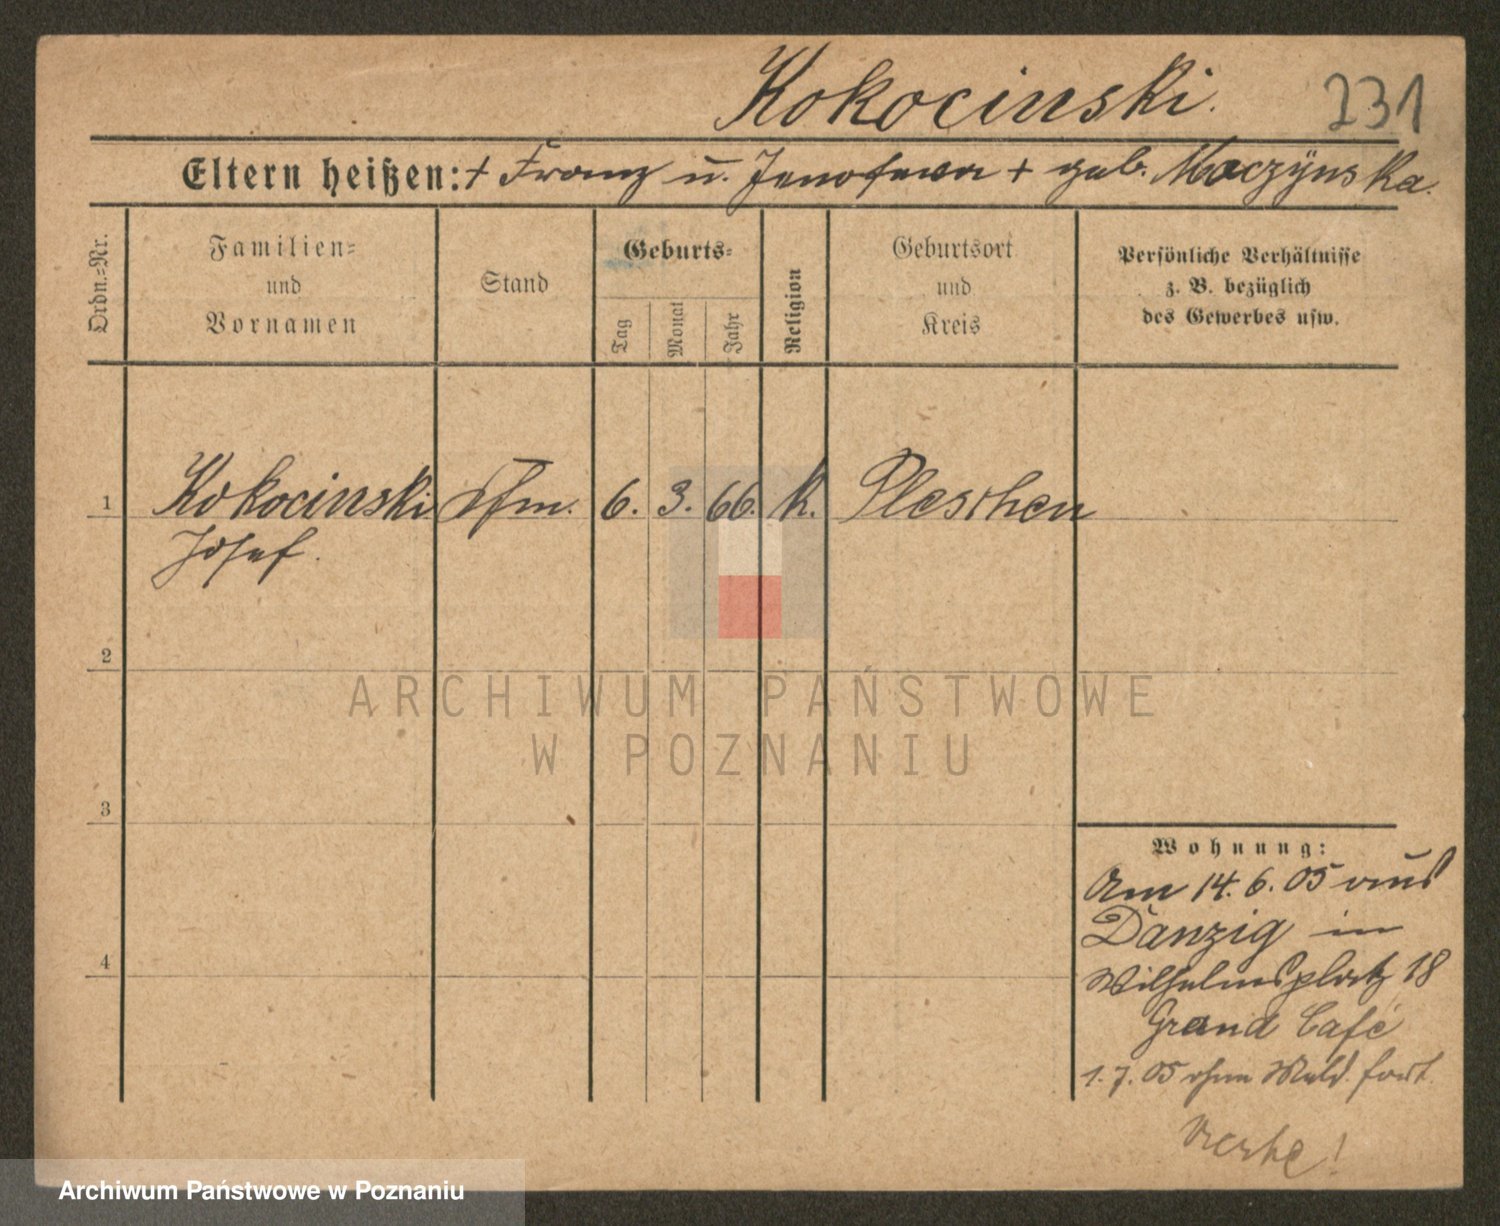 Kokocinski.
231
Eltern heißen: + Franz u. Jenofewa + geb. Moczÿnska.
Ordn.=Nr.
Familien= und Vornamen
Stand
Geburts=
Tag
Monat
Jahr
Religion
Geburtsort und Kreis
Persönliche Verhältnisse
z. B. bezüglich
des Gewerbes usw.
1 Kokocinski 6. 3. 66. k. Pleschen
Josef.
2
3
4
Wohnung:
Am 14. 6. 05 aus
Danzig in
Wilhelmsplatz 18
Grand Café
1. 7. 05 ohne Meld. fort.
ARCHIWUM PAŃSTWOWE
W POZNANIU
Archiwum Państwowe w Poznaniu